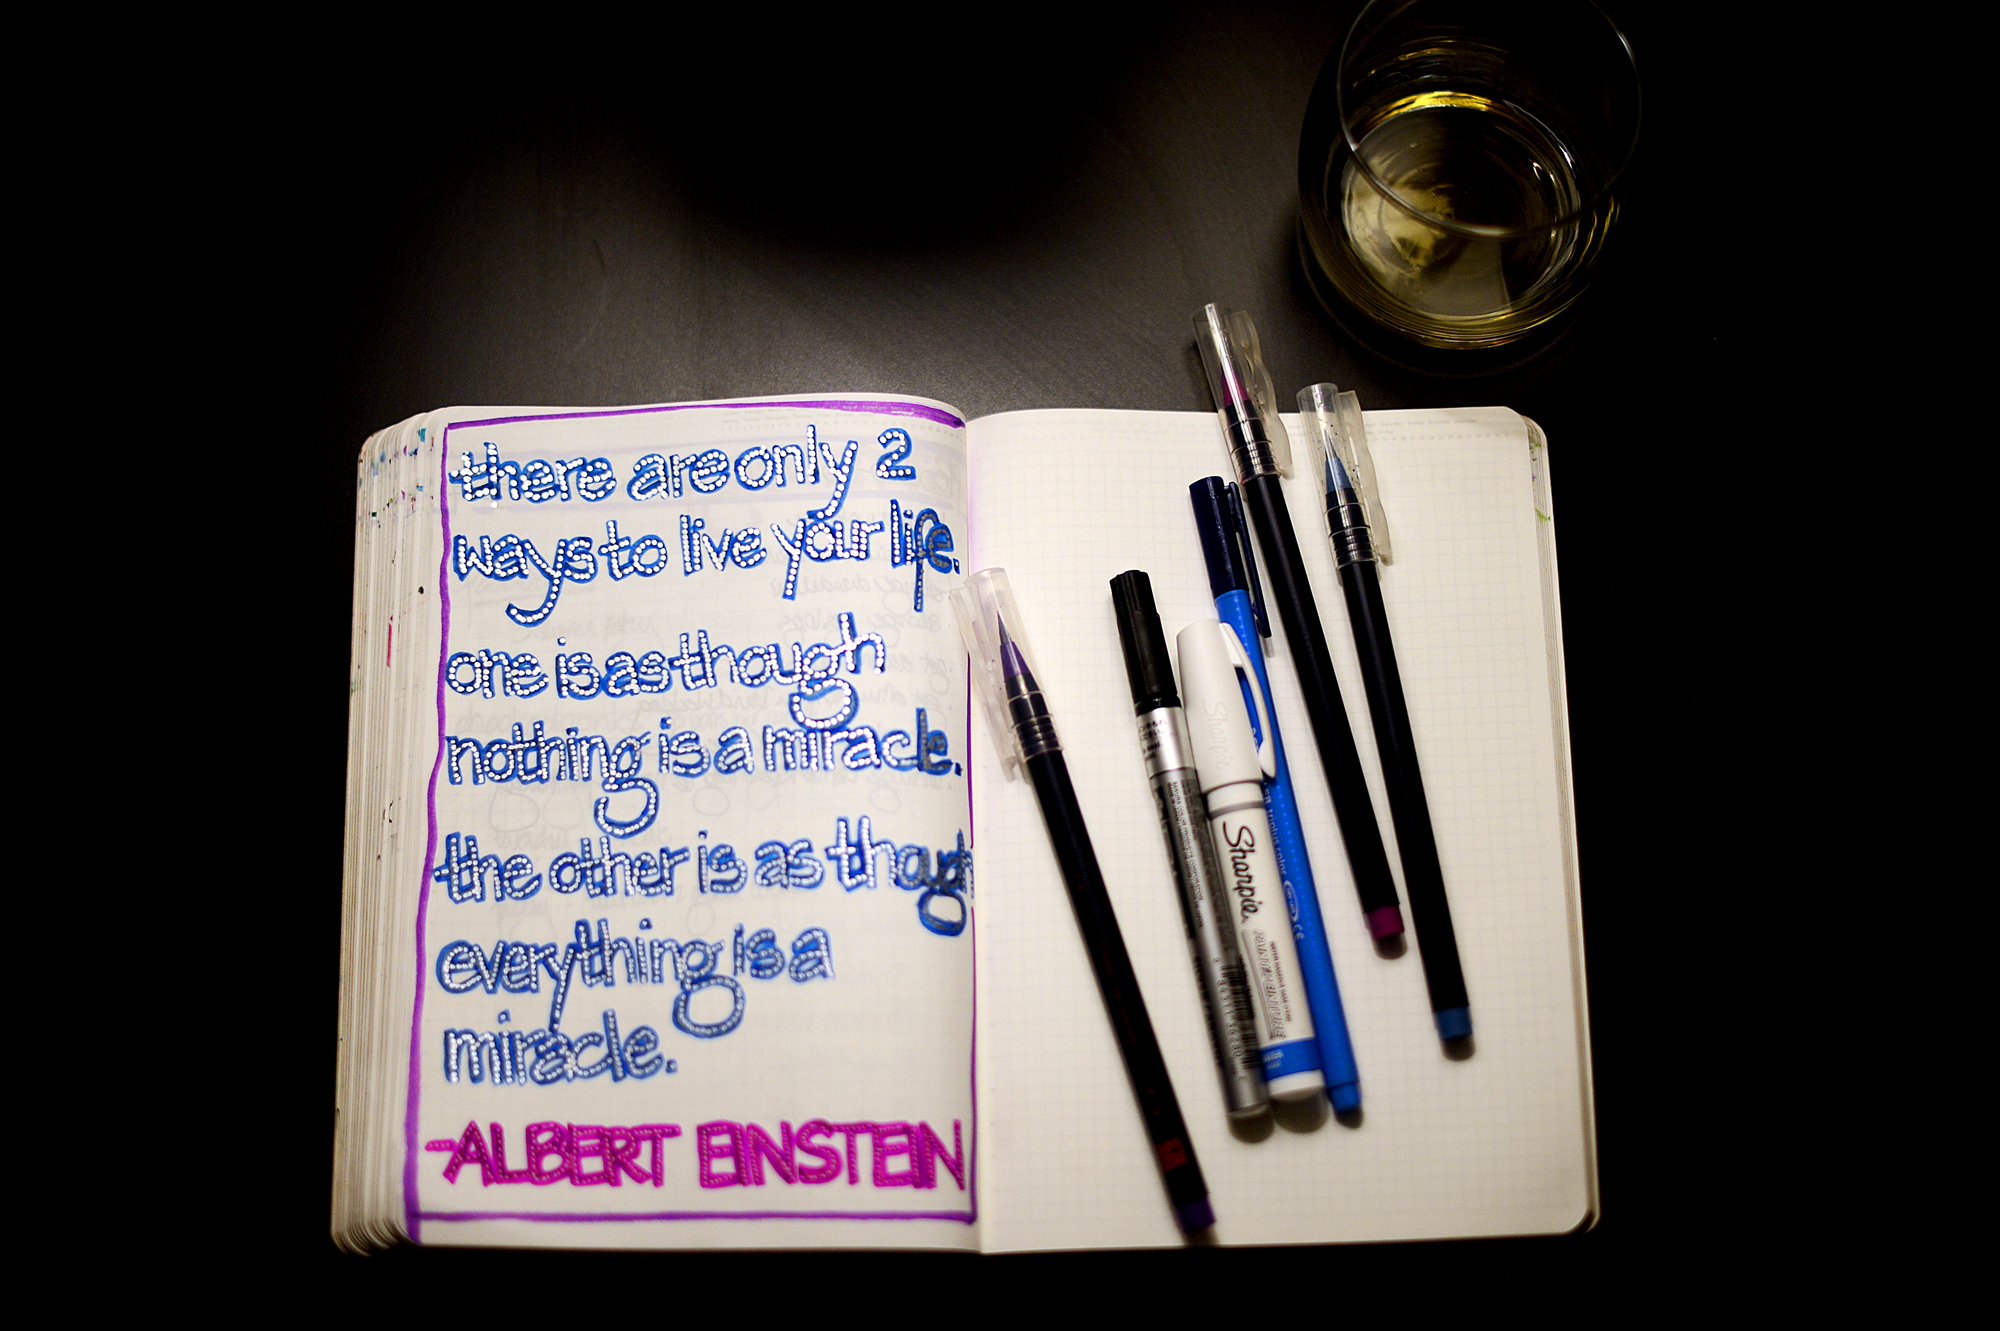 there are only 2
ways to live your life.
one is as though
nothing is a miracle.
the other is as though
everything is a
miracle.
-ALBERT EINSTEIN
Sharpie
Sharpie
PAINT
triplus color